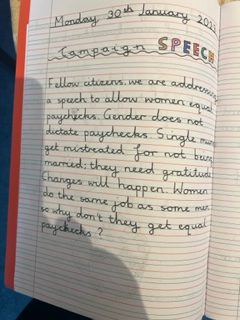 Monday 30th January
Campaign SPEECH
Fellow citizens, we are addressing
a speech to allow women equal
paychecks. Gender does not
dictate paychecks. Single mums
get mistreated for not being
married; they need gratitude.
Changes will happen. Women
do the same job as some men
so why don't they get equal
paychecks?